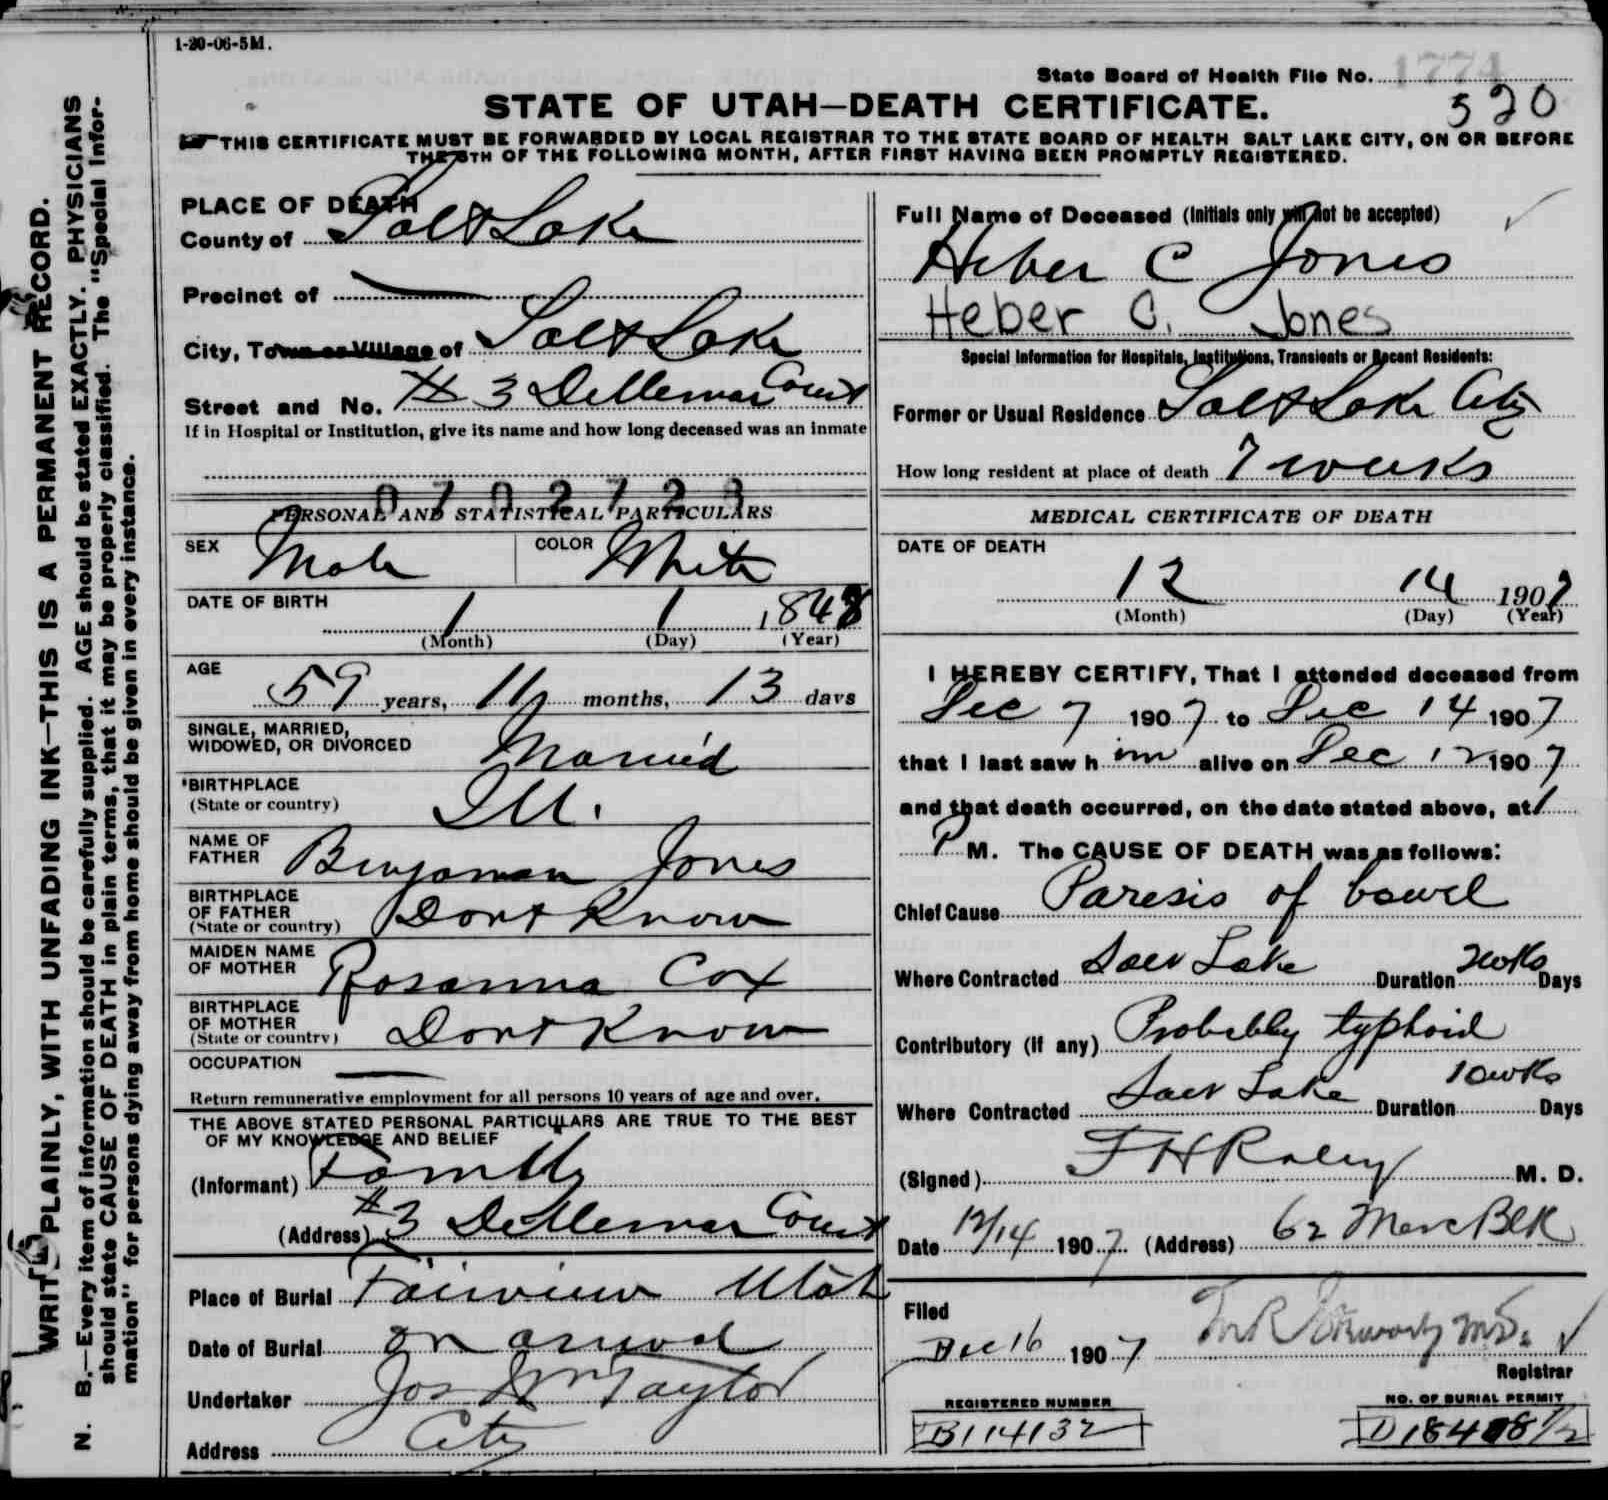 1-20-06-5M.
State Board of Health File No. 1774
520
STATE OF UTAH—DEATH CERTIFICATE.
THIS CERTIFICATE MUST BE FORWARDED BY LOCAL REGISTRAR TO THE STATE BOARD OF HEALTH SALT LAKE CITY, ON OR BEFORE
THE 5TH OF THE FOLLOWING MONTH, AFTER FIRST HAVING BEEN PROMPTLY REGISTERED.
WRITE PLAINLY, WITH UNFADING INK—THIS IS A PERMANENT RECORD.
N. B.—Every item of information should be carefully supplied. AGE should be stated EXACTLY. PHYSICIANS
should state CAUSE OF DEATH in plain terms, that it may be properly classified. The "Special Infor-
mation" for persons dying away from home should be given in every instance.
PLACE OF DEATH
County of Salt Lake
Precinct of
City, Town or Village of Salt Lake
Street and No. # 3 Dellemar Court
If in Hospital or Institution, give its name and how long deceased was an inmate
PERSONAL AND STATISTICAL PARTICULARS
SEX Male COLOR White
DATE OF BIRTH
1 1 1848
(Month) (Day) (Year)
AGE
59 years, 11 months, 13 days
SINGLE, MARRIED,
WIDOWED, OR DIVORCED Married
BIRTHPLACE
(State or country) Ill.
NAME OF
FATHER Benjaman Jones
BIRTHPLACE
OF FATHER
(State or country) Dont Know
MAIDEN NAME
OF MOTHER Rosanna Cox
BIRTHPLACE
OF MOTHER
(State or country) Dont Know
OCCUPATION
Return remunerative employment for all persons 10 years of age and over.
THE ABOVE STATED PERSONAL PARTICULARS ARE TRUE TO THE BEST
OF MY KNOWLEDGE AND BELIEF
(Informant) Family
(Address) #3 Dellemar Court
Place of Burial Fairview Utah
Date of Burial on arival
Undertaker Jos Wm Taylor
Address City
Full Name of Deceased (Initials only will not be accepted)
Heber C Jones
Heber C. Jones
Special Information for Hospitals, Institutions, Transients or Recent Residents:
Former or Usual Residence Salt Lake City
How long resident at place of death 7 weeks
MEDICAL CERTIFICATE OF DEATH
DATE OF DEATH
12 14 1907
(Month) (Day) (Year)
I HEREBY CERTIFY, That I attended deceased from
Dec 7 1907 to Dec 14 1907
that I last saw h im alive on Dec 12 1907
and that death occurred, on the date stated above, at 1
P M. The CAUSE OF DEATH was as follows:
Chief Cause Paresis of bowel
Where Contracted Salt Lake Duration 2wks Days
Contributory (if any) Probably typhoid
Where Contracted Salt Lake Duration 10wks Days
(Signed) F H Raley M. D.
Date 12/14 1907 (Address) 62 Merc Blk
Filed
Dec 16 1907
Registrar
REGISTERED NUMBER
B114132
NO. OF BURIAL PERMIT
D18408 1/2